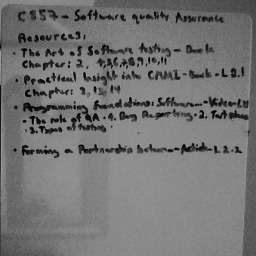 CS57 - Software quality Assurance
Resources:
• The Art of Software testing - Book
Chapter: 2, 4, 5, 6, 7, 8, 9, 10, 11
• Practical Insight into CMMI - Book - L 2.1
Chapter: 3, 13, 14
• Programming foundations: Software -- Video - L
- The role of QA - 4. Bug Reporting - 2. Test
- 3. Types of testing
• Forming a Partnership between -- Article - L 2.2